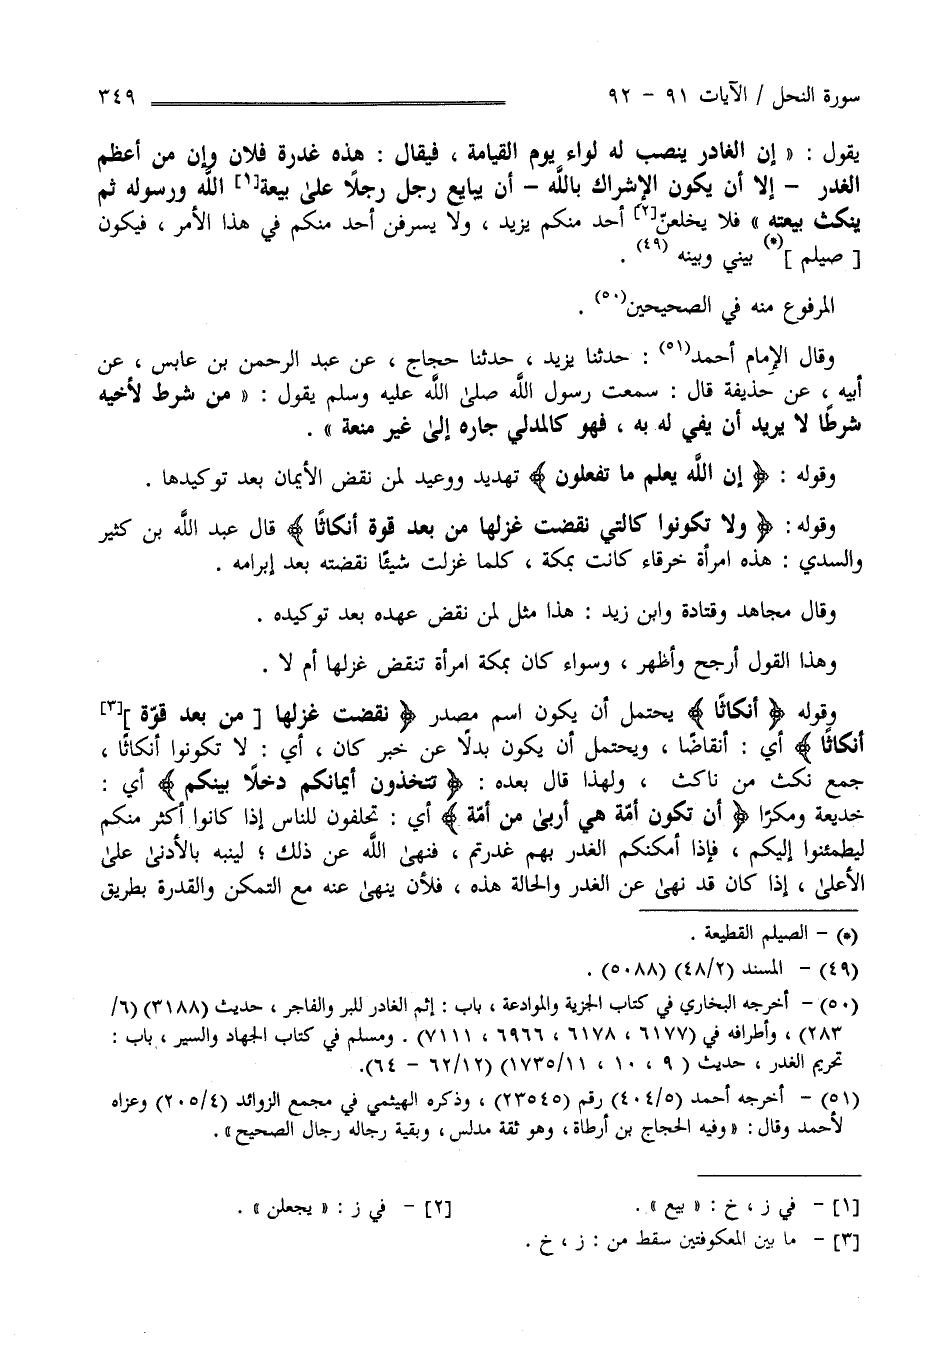 سورة النحل / الآيات ٩١ - ٩٢ ٣٤٩
يقول : « إن الغادر ينصب له لواء يوم القيامة ، فيقال : هذه غدرة فلان وإن من أعظم
الغدر - إلا أن يكون الإشراك بالله - أن يبايع رجل رجلًا على بيعة[١] الله ورسوله ثم
ينكث بيعته » فلا يخلعنّ[٢] أحد منكم يزيد ، ولا يسرفن أحد منكم في هذا الأمر ، فيكون
[ صيلم ](*) بيني وبينه (٤٩) .
المرفوع منه في الصحيحين(٥٠) .
وقال الإمام أحمد(٥١) : حدثنا يزيد ، حدثنا حجاج ، عن عبد الرحمن بن عابس ، عن
أبيه ، عن حذيفة قال : سمعت رسول الله صلى الله عليه وسلم يقول : « من شرط لأخيه
شرطًا لا يريد أن يفي له به ، فهو كالمدلي جاره إلى غير منعة » .
وقوله : ﴿ إن الله يعلم ما تفعلون ﴾ تهديد ووعيد لمن نقض الأيمان بعد توكيدها .
وقوله: ﴿ ولا تكونوا كالتي نقضت غزلها من بعد قوة أنكاثًا ﴾ قال عبد الله بن كثير
والسدي : هذه امرأة خرقاء كانت بمكة ، كلما غزلت شيئًا نقضته بعد إبرامه .
وقال مجاهد وقتادة وابن زيد : هذا مثل لمن نقض عهده بعد توكيده .
وهذا القول أرجح وأظهر ، وسواء كان بمكة امرأة تنقض غزلها أم لا .
وقوله ﴿ أنكاثًا ﴾ يحتمل أن يكون اسم مصدر ﴿ نقضت غزلها [ من بعد قوّة ][٣]
أنكاثًا ﴾ أي : أنقاضًا ، ويحتمل أن يكون بدلًا عن خبر كان ، أي : لا تكونوا أنكاثًا ،
جمع نكث من ناكث ، ولهذا قال بعده : ﴿ تتخذون أيمانكم دخلًا بينكم ﴾ أي :
خديعة ومكرًا ﴿ أن تكون أمّة هي أربى من أمّة ﴾ أي : تحلفون للناس إذا كانوا أكثر منكم
ليطمئنوا إليكم ، فإذا أمكنكم الغدر بهم غدرتم ، فنهى الله عن ذلك ؛ لينبه بالأدنى على
الأعلى ، إذا كان قد نهى عن الغدر والحالة هذه ، فلأن ينهى عنه مع التمكن والقدرة بطريق
(*) - الصيلم القطيعة .
(٤٩) - المسند (٤٨/٢) (٥٠٨٨) .
(٥٠) - أخرجه البخاري في كتاب الجزية والموادعة ، باب : إثم الغادر للبر والفاجر ، حديث (٣١٨٨) (٦/
٢٨٣) ، وأطرافه في (٦١٧٧ ، ٦١٧٨ ، ٦٩٦٦ ، ٧١١١) . ومسلم في كتاب الجهاد والسير ، باب :
تحريم الغدر ، حديث ( ٩ ، ١٠ ، ١٧٣٥/١١) (٦٢/١٢ - ٦٤).
(٥١) - أخرجه أحمد (٤٠٤/٥) رقم (٢٣٥٤٥) ، وذكره الهيثمي في مجمع الزوائد (٢٠٥/٤) وعزاه
لأحمد وقال: « وفيه الحجاج بن أرطاة، وهو ثقة مدلس، وبقية رجاله رجال الصحيح».
[١] - في ز ، خ : « بيع » . [٢] - في ز : « يجعلن » .
[٣] - ما بين المعكوفتين سقط من : ز ، خ .